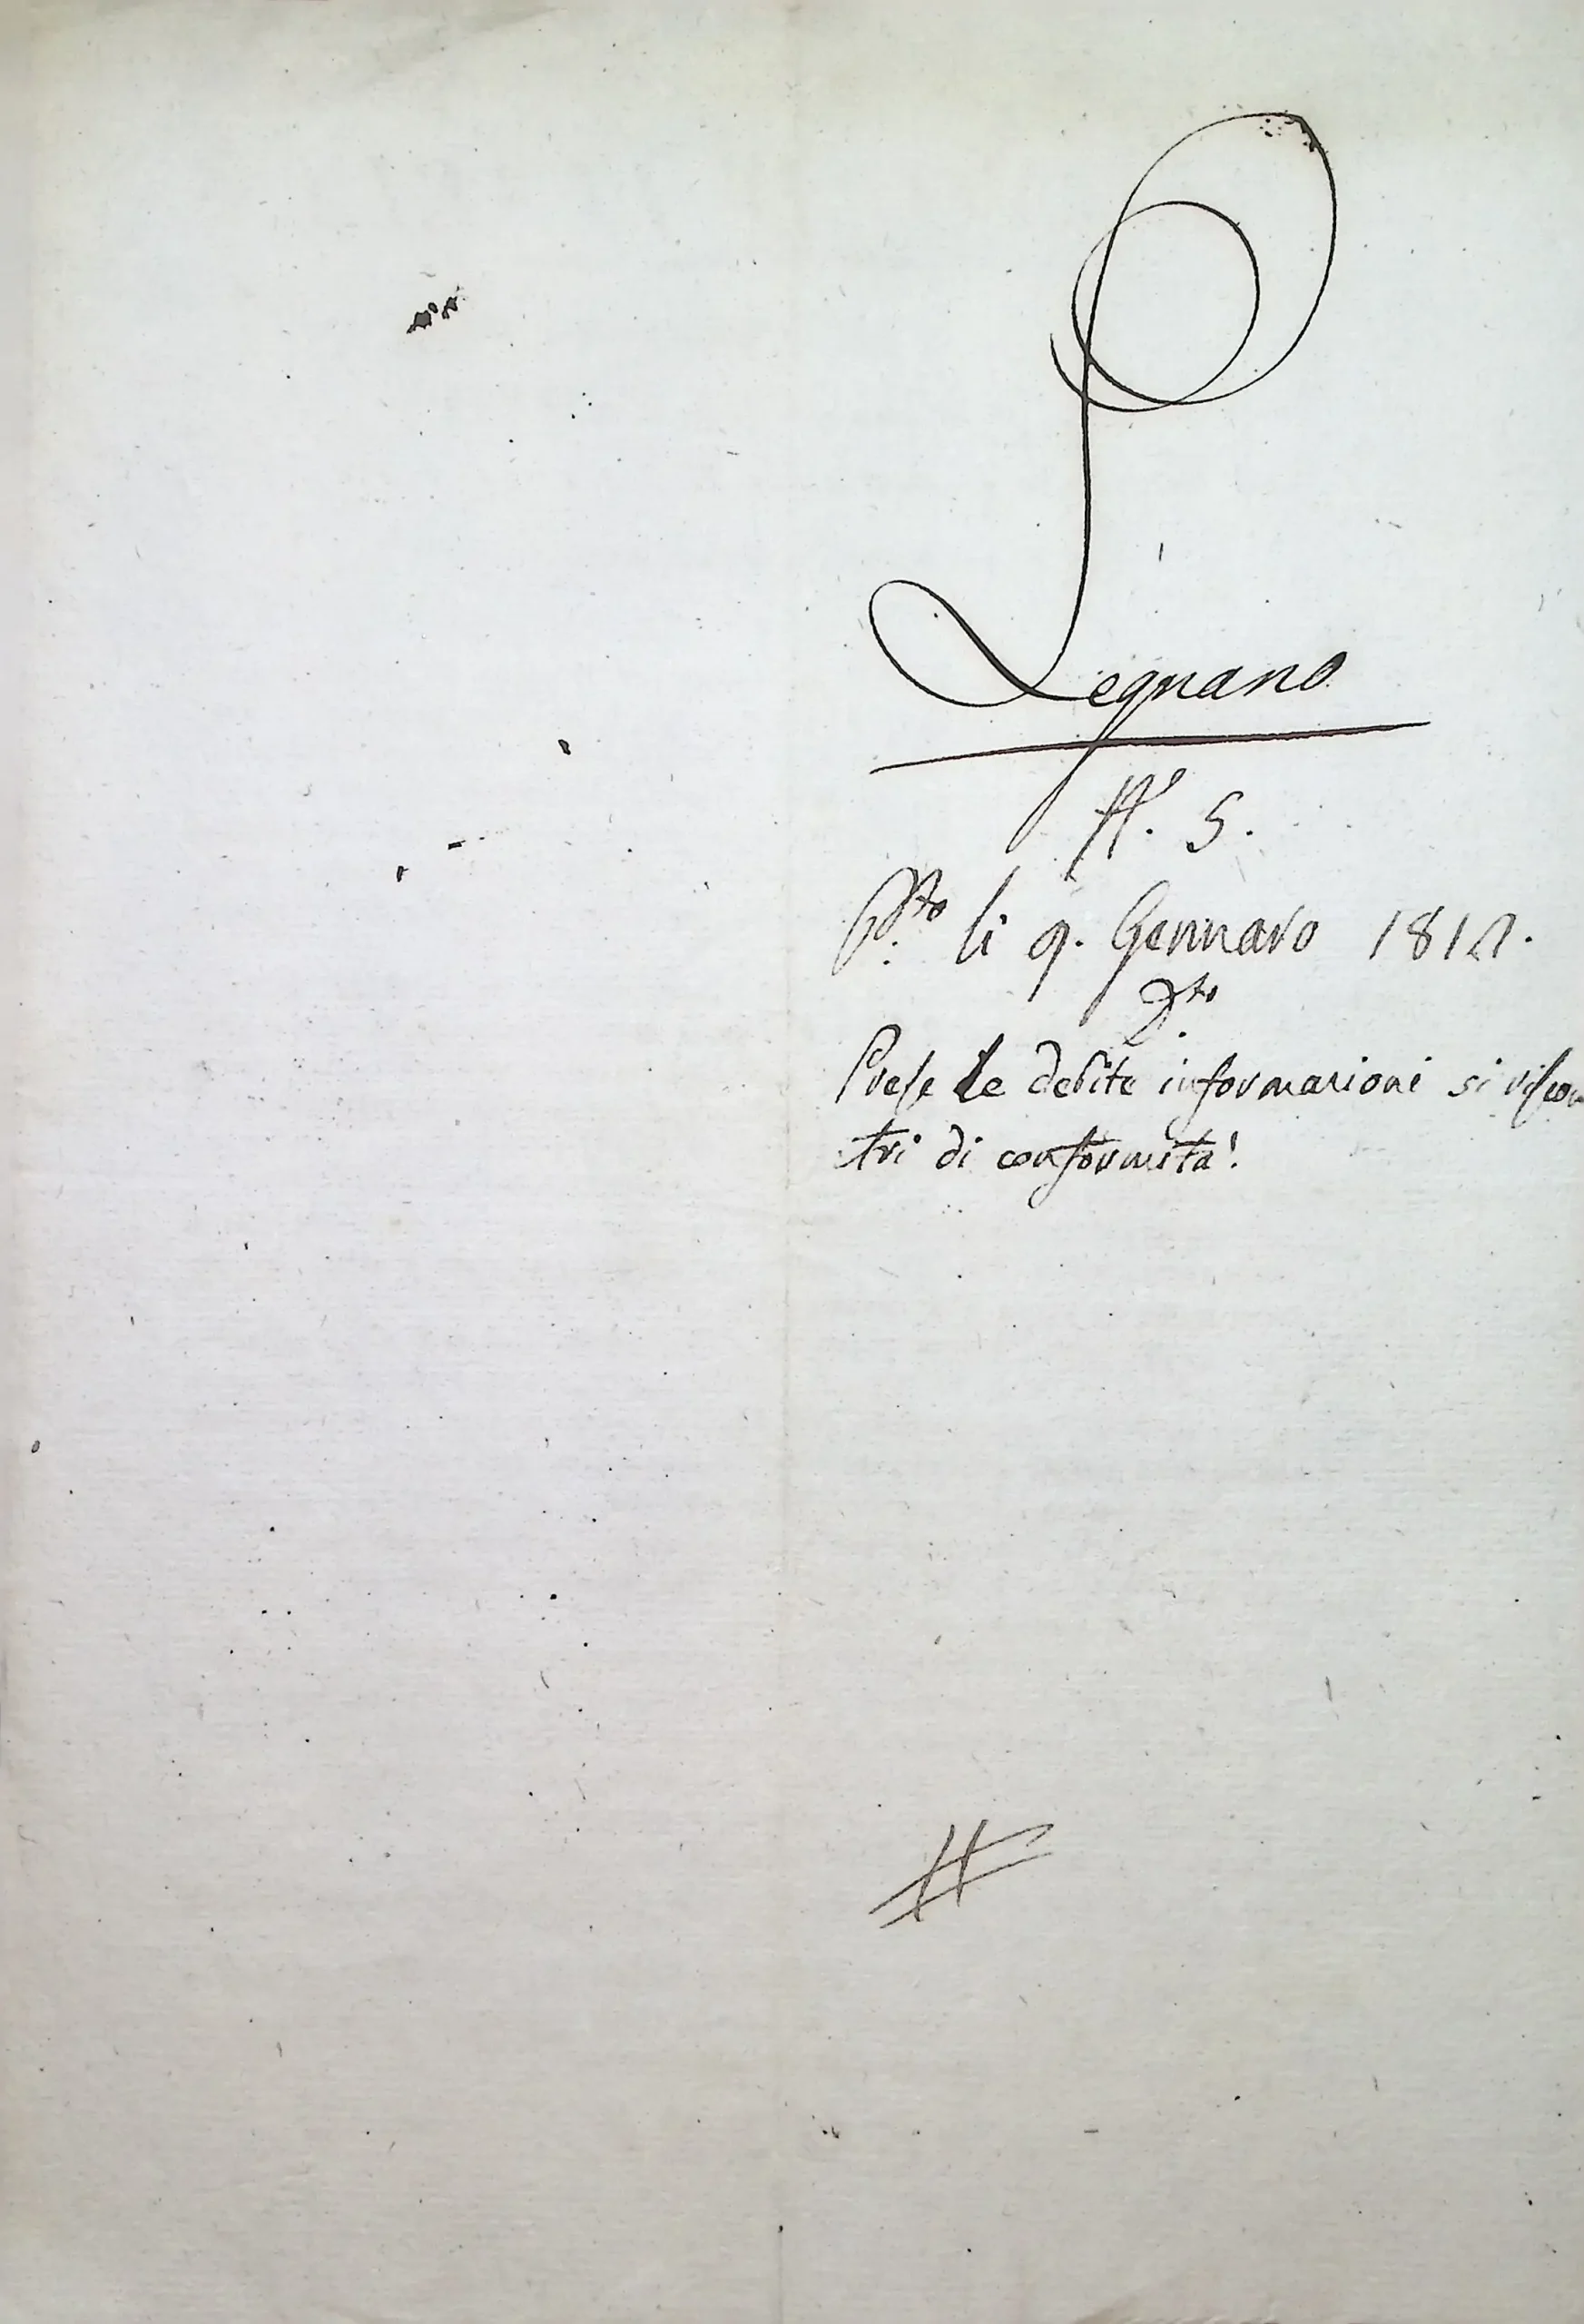 Legnano
N.° 5.
P.to li 9. Gennaro 1812.
D.to
Prese le debite informazioni si riscon
tri di conformità.